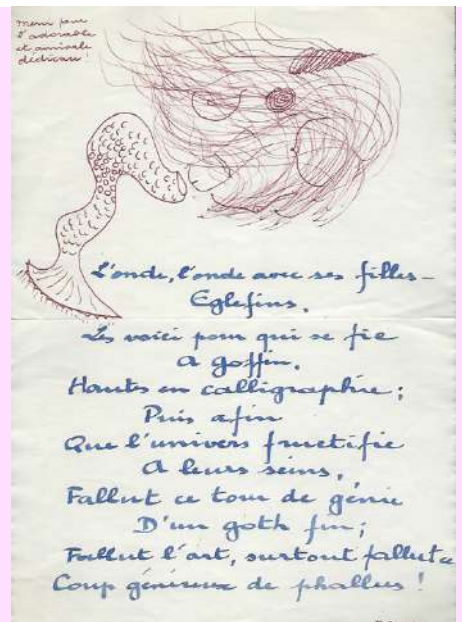 Merci pour
l'adorable
et amicale
dédicace !
L'onde, l'onde avec ses filles –
Eglefins,
Les voici pour qui se fie
A goffin.
Hautes en calligraphie ;
Puis afin
Que l'univers fructifie
A leurs seins,
Fallut ce tour de génie
D'un goth fin ;
Fallut l'art, surtout fallut ce
Coup généreux de phallus !